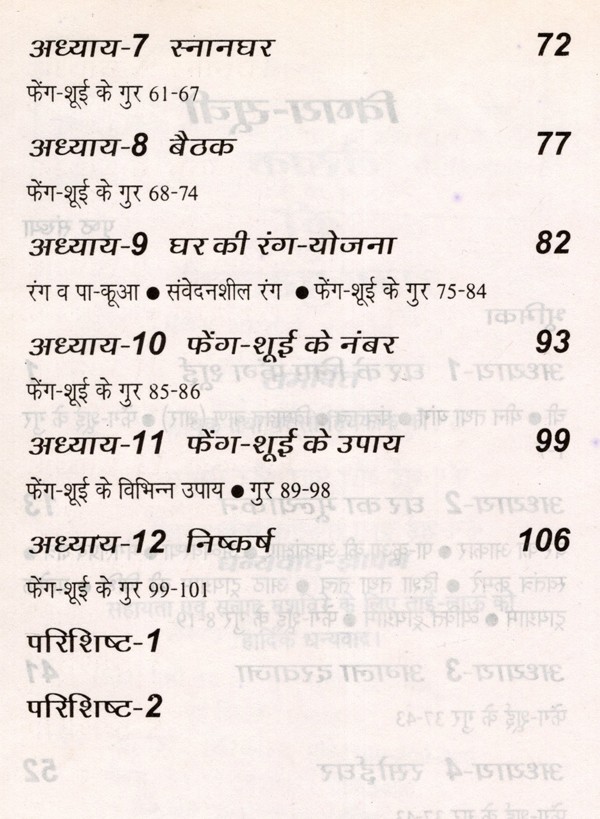 अध्याय-7 स्नानघर 72
फेंग-शूई के गुर 61-67
अध्याय-8 बैठक 77
फेंग-शूई के गुर 68-74
अध्याय-9 घर की रंग-योजना 82
रंग व पा-कूआ ● संवेदनशील रंग ● फेंग-शूई के गुर 75-84
अध्याय-10 फेंग-शूई के नंबर 93
फेंग-शूई के गुर 85-86
अध्याय-11 फेंग-शूई के उपाय 99
फेंग-शूई के विभिन्न उपाय ● गुर 89-98
अध्याय-12 निष्कर्ष 106
फेंग-शूई के गुर 99-101
परिशिष्ट-1
परिशिष्ट-2